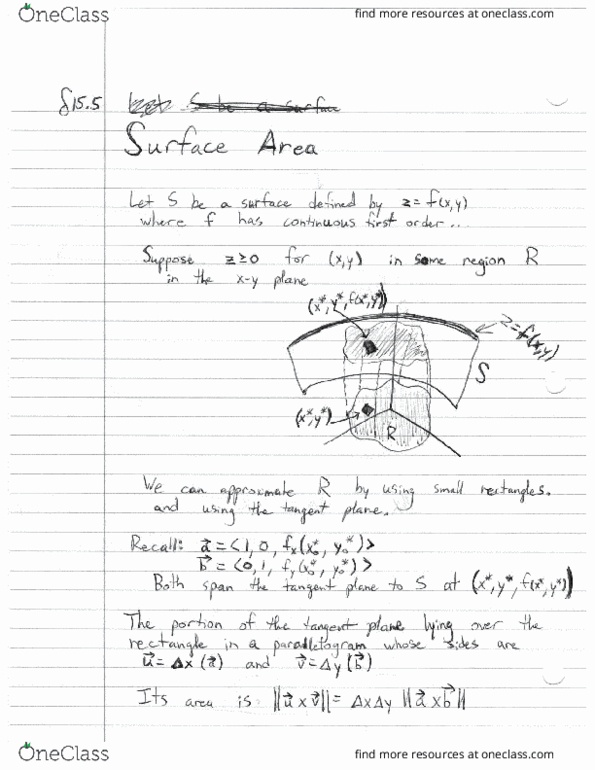 OneClass
find more resources at oneclass.com
§15.5 Let S be a surface
Surface Area
Let S be a surface defined by z = f(x,y)
where f has continuous first order...
Suppose z ≥ 0 for (x,y) in some region R
in the x-y plane
(x*, y*, f(x*, y*))
z = f(x,y)
S
(x*, y*)
R
We can approximate R by using small rectangles.
and using the tangent plane.
Recall: a⃗ = <1, 0, fx(x₀*, y₀*)>
b⃗ = <0, 1, fy(x₀*, y₀*)>
Both span the tangent plane to S at (x*, y*, f(x*, y*))
The portion of the tangent plane lying over the
rectangle in a parallelogram whose sides are
u⃗ = Δx (a⃗) and v⃗ = Δy (b⃗)
Its area is ||u⃗ x v⃗|| = ΔxΔy ||a⃗ x b⃗||
OneClass
find more resources at oneclass.com